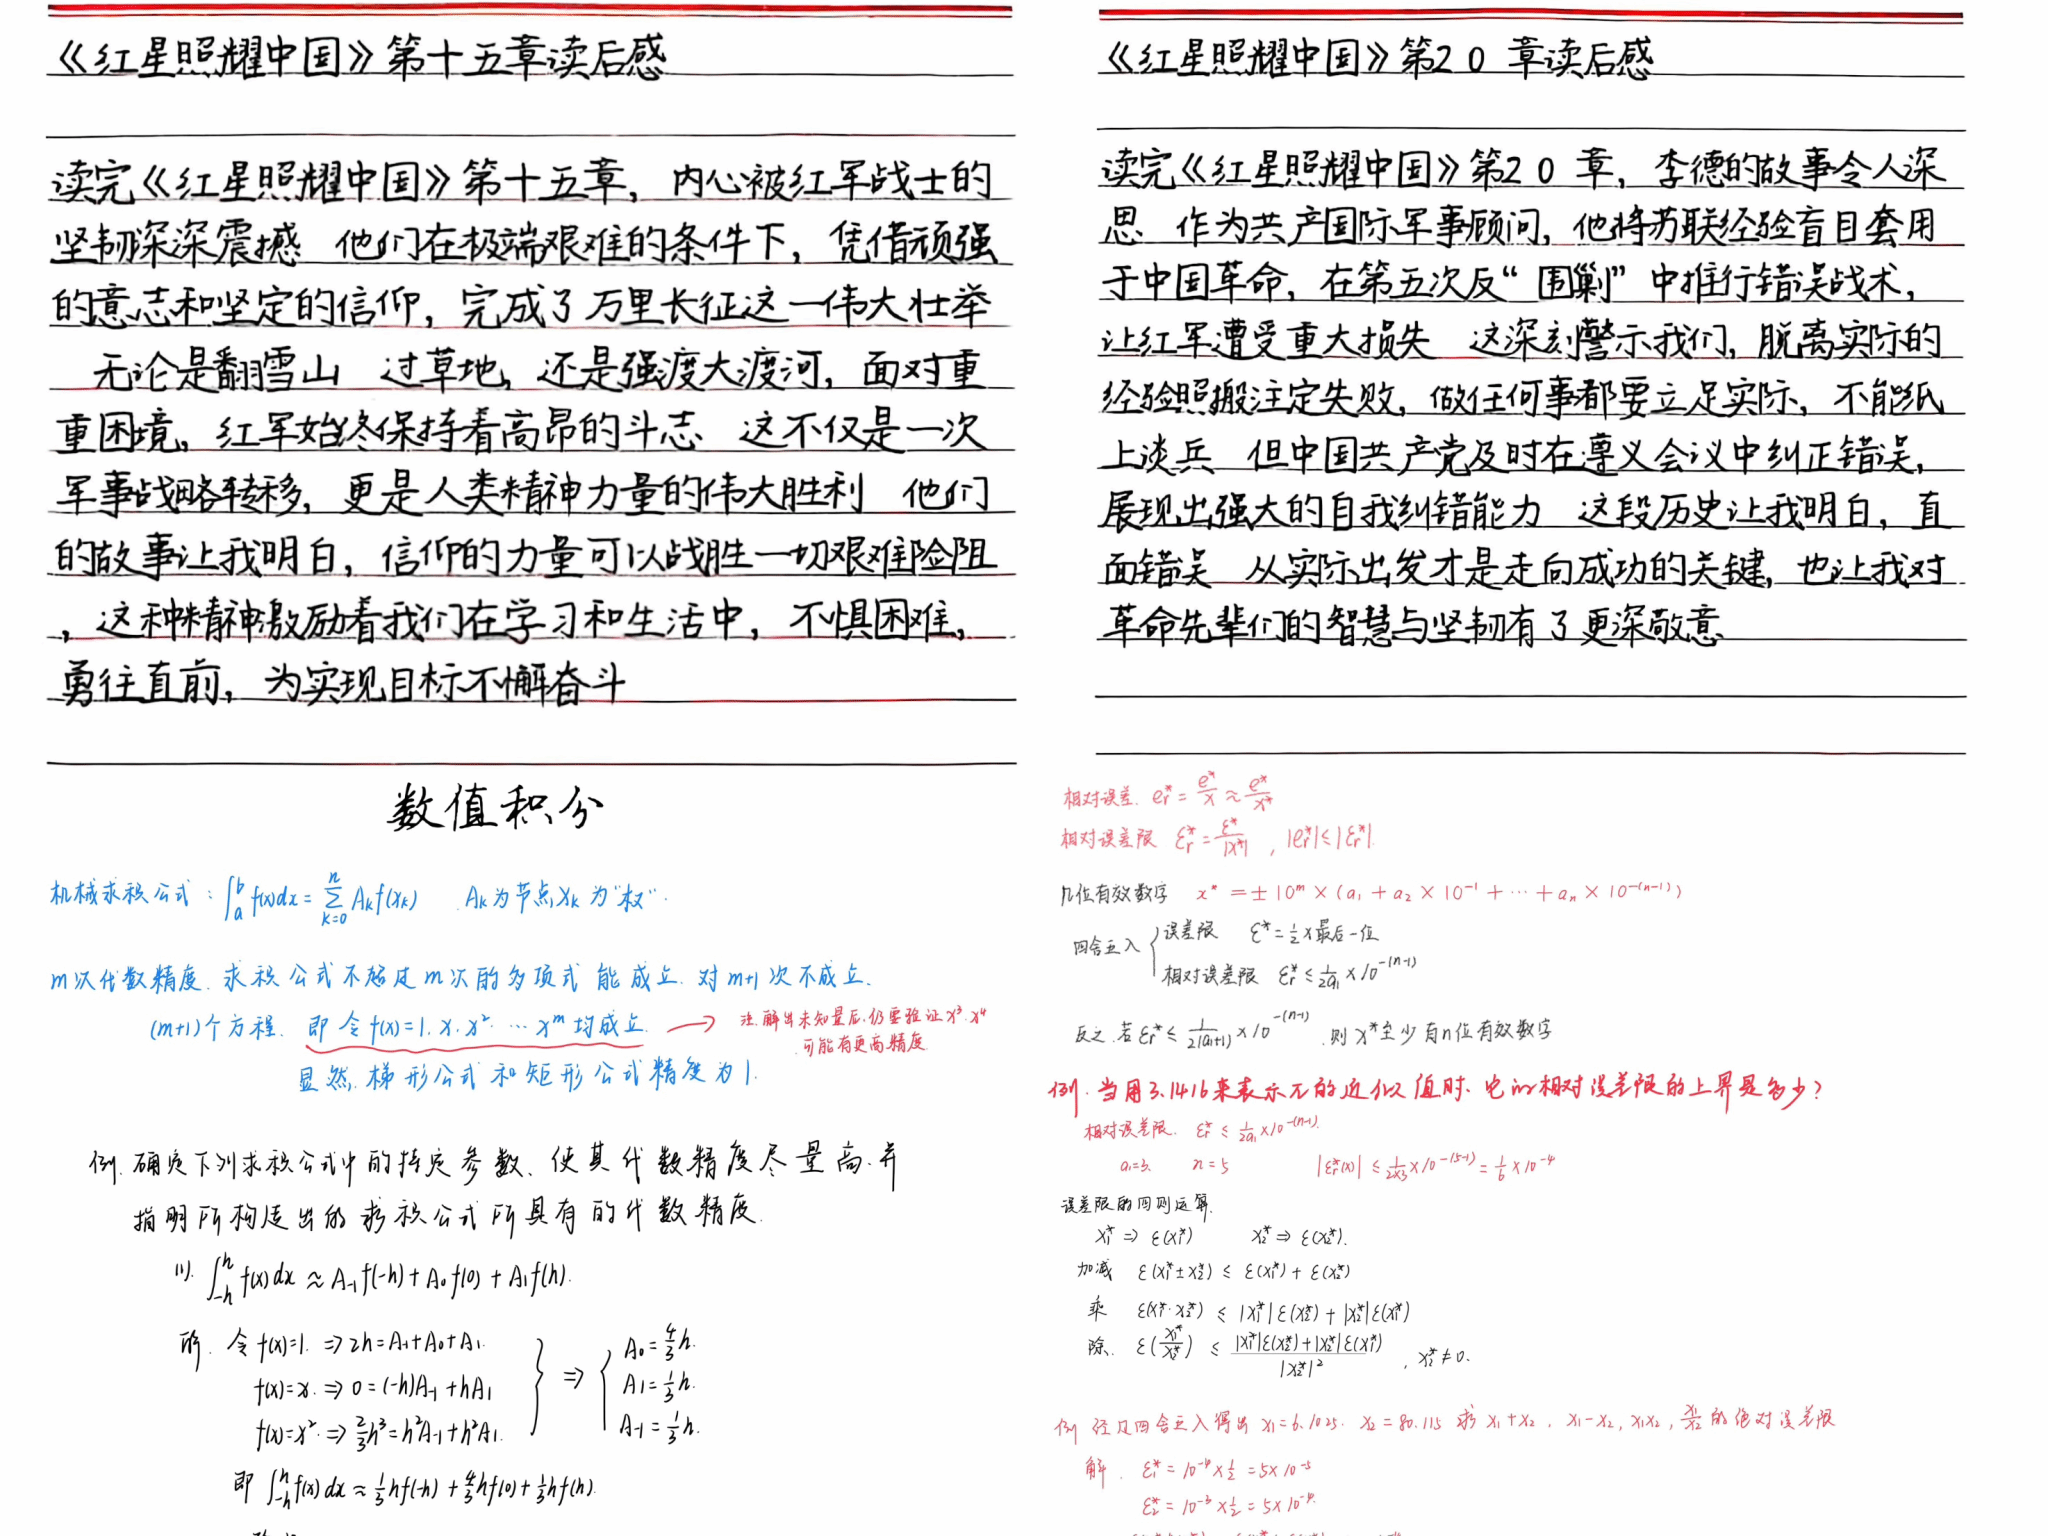 《红星照耀中国》第十五章读后感
读完《红星照耀中国》第十五章，内心被红军战士的
坚韧深深震撼 他们在极端艰难的条件下，凭借顽强
的意志和坚定的信仰，完成了万里长征这一伟大壮举
无论是翻雪山 过草地，还是强渡大渡河，面对重
重困境，红军始终保持着高昂的斗志 这不仅是一次
军事战略转移，更是人类精神力量的伟大胜利 他们
的故事让我明白，信仰的力量可以战胜一切艰难险阻
，这种精神激励着我们在学习和生活中，不惧困难，
勇往直前，为实现目标不懈奋斗
《红星照耀中国》第20 章读后感
读完《红星照耀中国》第20 章，李德的故事令人深
思 作为共产国际军事顾问，他将苏联经验盲目套用
于中国革命，在第五次反“围剿”中推行错误战术，
让红军遭受重大损失 这深刻警示我们，脱离实际的
经验照搬注定失败，做任何事都要立足实际，不能纸
上谈兵 但中国共产党及时在遵义会议中纠正错误，
展现出强大的自我纠错能力 这段历史让我明白，直
面错误 从实际出发才是走向成功的关键，也让我对
革命先辈们的智慧与坚韧有了更深敬意
数值积分
机械求积公式：∫_a^b f(x)dx = Σ_{k=0}^n A_k f(x_k) A_k为节点x_k为“权”.
m次代数精度. 求积公式不超过m次的多项式能成立. 对m+1次不成立.
(m+1)个方程. 即令f(x)=1. x. x² … x^m 均成立. → 注.解出未知量后.仍要验证x³.x⁴
可能有更高精度
显然.梯形公式和矩形公式精度为1.
例.确定下列求积公式中的待定参数、使其代数精度尽量高.并
指明所构造出的求积公式所具有的代数精度.
(1). ∫_{-h}^h f(x)dx ≈ A_{-1}f(-h) + A_0f(0) + A_1f(h).
解. 令f(x)=1. ⇒ 2h = A_{-1}+A_0+A_1. A_0 = 4/3 h.
f(x)=x. ⇒ 0 = (-h)A_{-1}+hA_1 ⇒ A_1 = 1/3 h.
f(x)=x² ⇒ 2/3 h³ = h²A_{-1}+h²A_1. A_{-1} = 1/3 h.
即 ∫_{-h}^h f(x)dx ≈ 1/3 hf(-h) + 4/3 hf(0) + 1/3 hf(h).
相对误差. e_r^* = e^*/x ≈ e^*/x^*
相对误差限 ε_r^* = ε^*/|x^*| , |e_r^*| ≤ |ε_r^*|.
n位有效数字 x^* = ± 10^m × (a_1 + a_2 × 10^{-1} + … + a_n × 10^{-(n-1)})
四舍五入 { 误差限 ε^* = 1/2 × 最后一位
相对误差限 ε_r^* ≤ 1/(2a_1) × 10^{-(n-1)}
反之.若 ε_r^* ≤ 1/(2(a_1+1)) × 10^{-(n-1)} .则x^*至少有n位有效数字
例.当用3.1416来表示π的近似值时.它的相对误差限的上界是多少？
相对误差限. ε_r^* ≤ 1/(2a_1) × 10^{-(n-1)}.
a_1=3. n=5 |ε_r^*(x)| ≤ 1/(2×3) × 10^{-(5-1)} = 1/6 × 10^{-4}
误差限的四则运算.
x_1^* ⇒ ε(x_1^*) x_2^* ⇒ ε(x_2^*).
加减 ε(x_1^* ± x_2^*) ≤ ε(x_1^*) + ε(x_2^*)
乘 ε(x_1^* · x_2^*) ≤ |x_1^*|ε(x_2^*) + |x_2^*|ε(x_1^*)
除. ε(x_1^*/x_2^*) ≤ (|x_1^*|ε(x_2^*) + |x_2^*|ε(x_1^*))/|x_2^*|² , x_2^* ≠ 0.
例 经过四舍五入得出 x_1=6.1025. x_2=80.115 求 x_1+x_2 . x_1-x_2, x_1x_2, x_1/x_2 的绝对误差限
解. ε_1^* = 10^{-4} × 1/2 = 5×10^{-5}
ε_2^* = 10^{-3} × 1/2 = 5×10^{-4}.